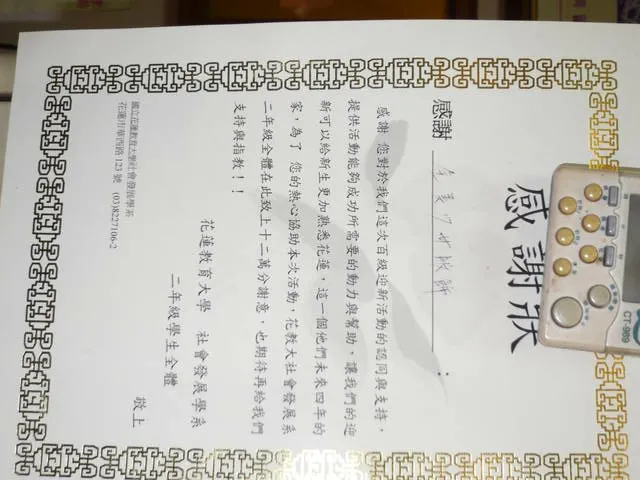 感謝狀
感謝
：
感謝 您對於我們這次百級迎新活動的認同與支持，
提供活動能夠成功所需要的動力與幫助，讓我們的迎
新可以給新生更加熟悉花蓮，這一個他們未來四年的
家，為了 您的熱心協助本次活動，花教大社會發展系
二年級全體在此致上十二萬分謝意，也期待再給我們
支持與指教！！
花蓮教育大學 社會發展學系
二年級學生全體
敬上
國立花蓮教育大學社會發展學系
花蓮市華西路 123 號 (03)8227106-2
CT-969